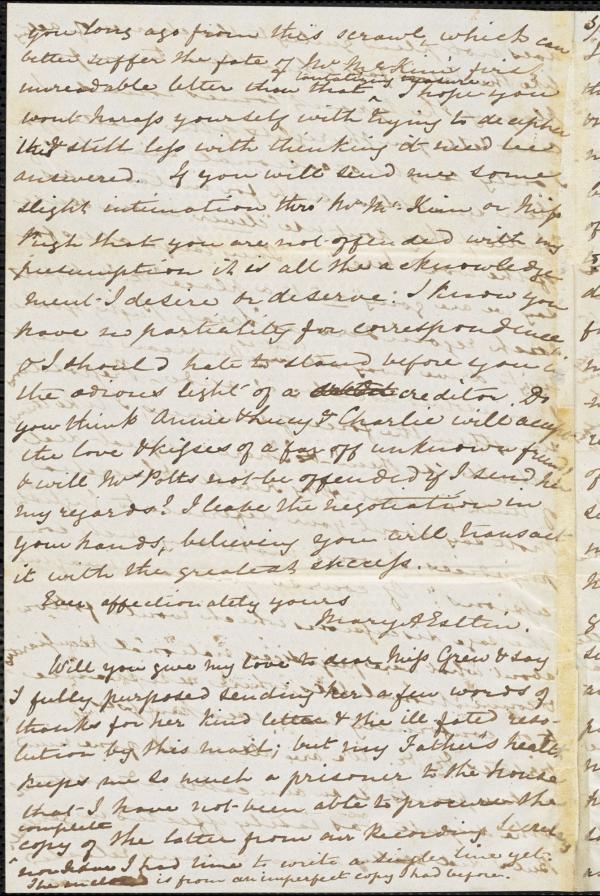 you long ago from this scrawl, which can
better suffer the fate of Mr McKim's first
unreadable letter than that I hope you
wont harass yourself with trying to decipher
it & still less with thinking it need be
answered. If you will send me some
slight intimation thro' Mr McKim or Miss
Pugh that you are not offended with my
presumption it is all the acknowledge
ment I desire or deserve: I know you
have no partiality for correspondence
& I should hate to stand before you in
the odious light of a creditor. Do
you think Annie & Lucy & Charlie will accept
the love & kisses of a far off unknown friend,
& will Mrs Potts not be offended if I send her
my regards? I leave the negotiation in
your hands, believing you will transact
it with the greatest success.
Ever affectionately yours
Mary A Estlin.
Will you give my love to dear Miss Grew & say
I fully purposed sending her a few words of
thanks for her kind letter & the ill fated reso-
lution by this mail; but my Father's health
keeps me so much a prisoner to the house
that I have not been able to procure the
complete
copy of the latter from our Recording Secretary
nor have I had time to write a single line yet.
The is from an imperfect copy I had before.